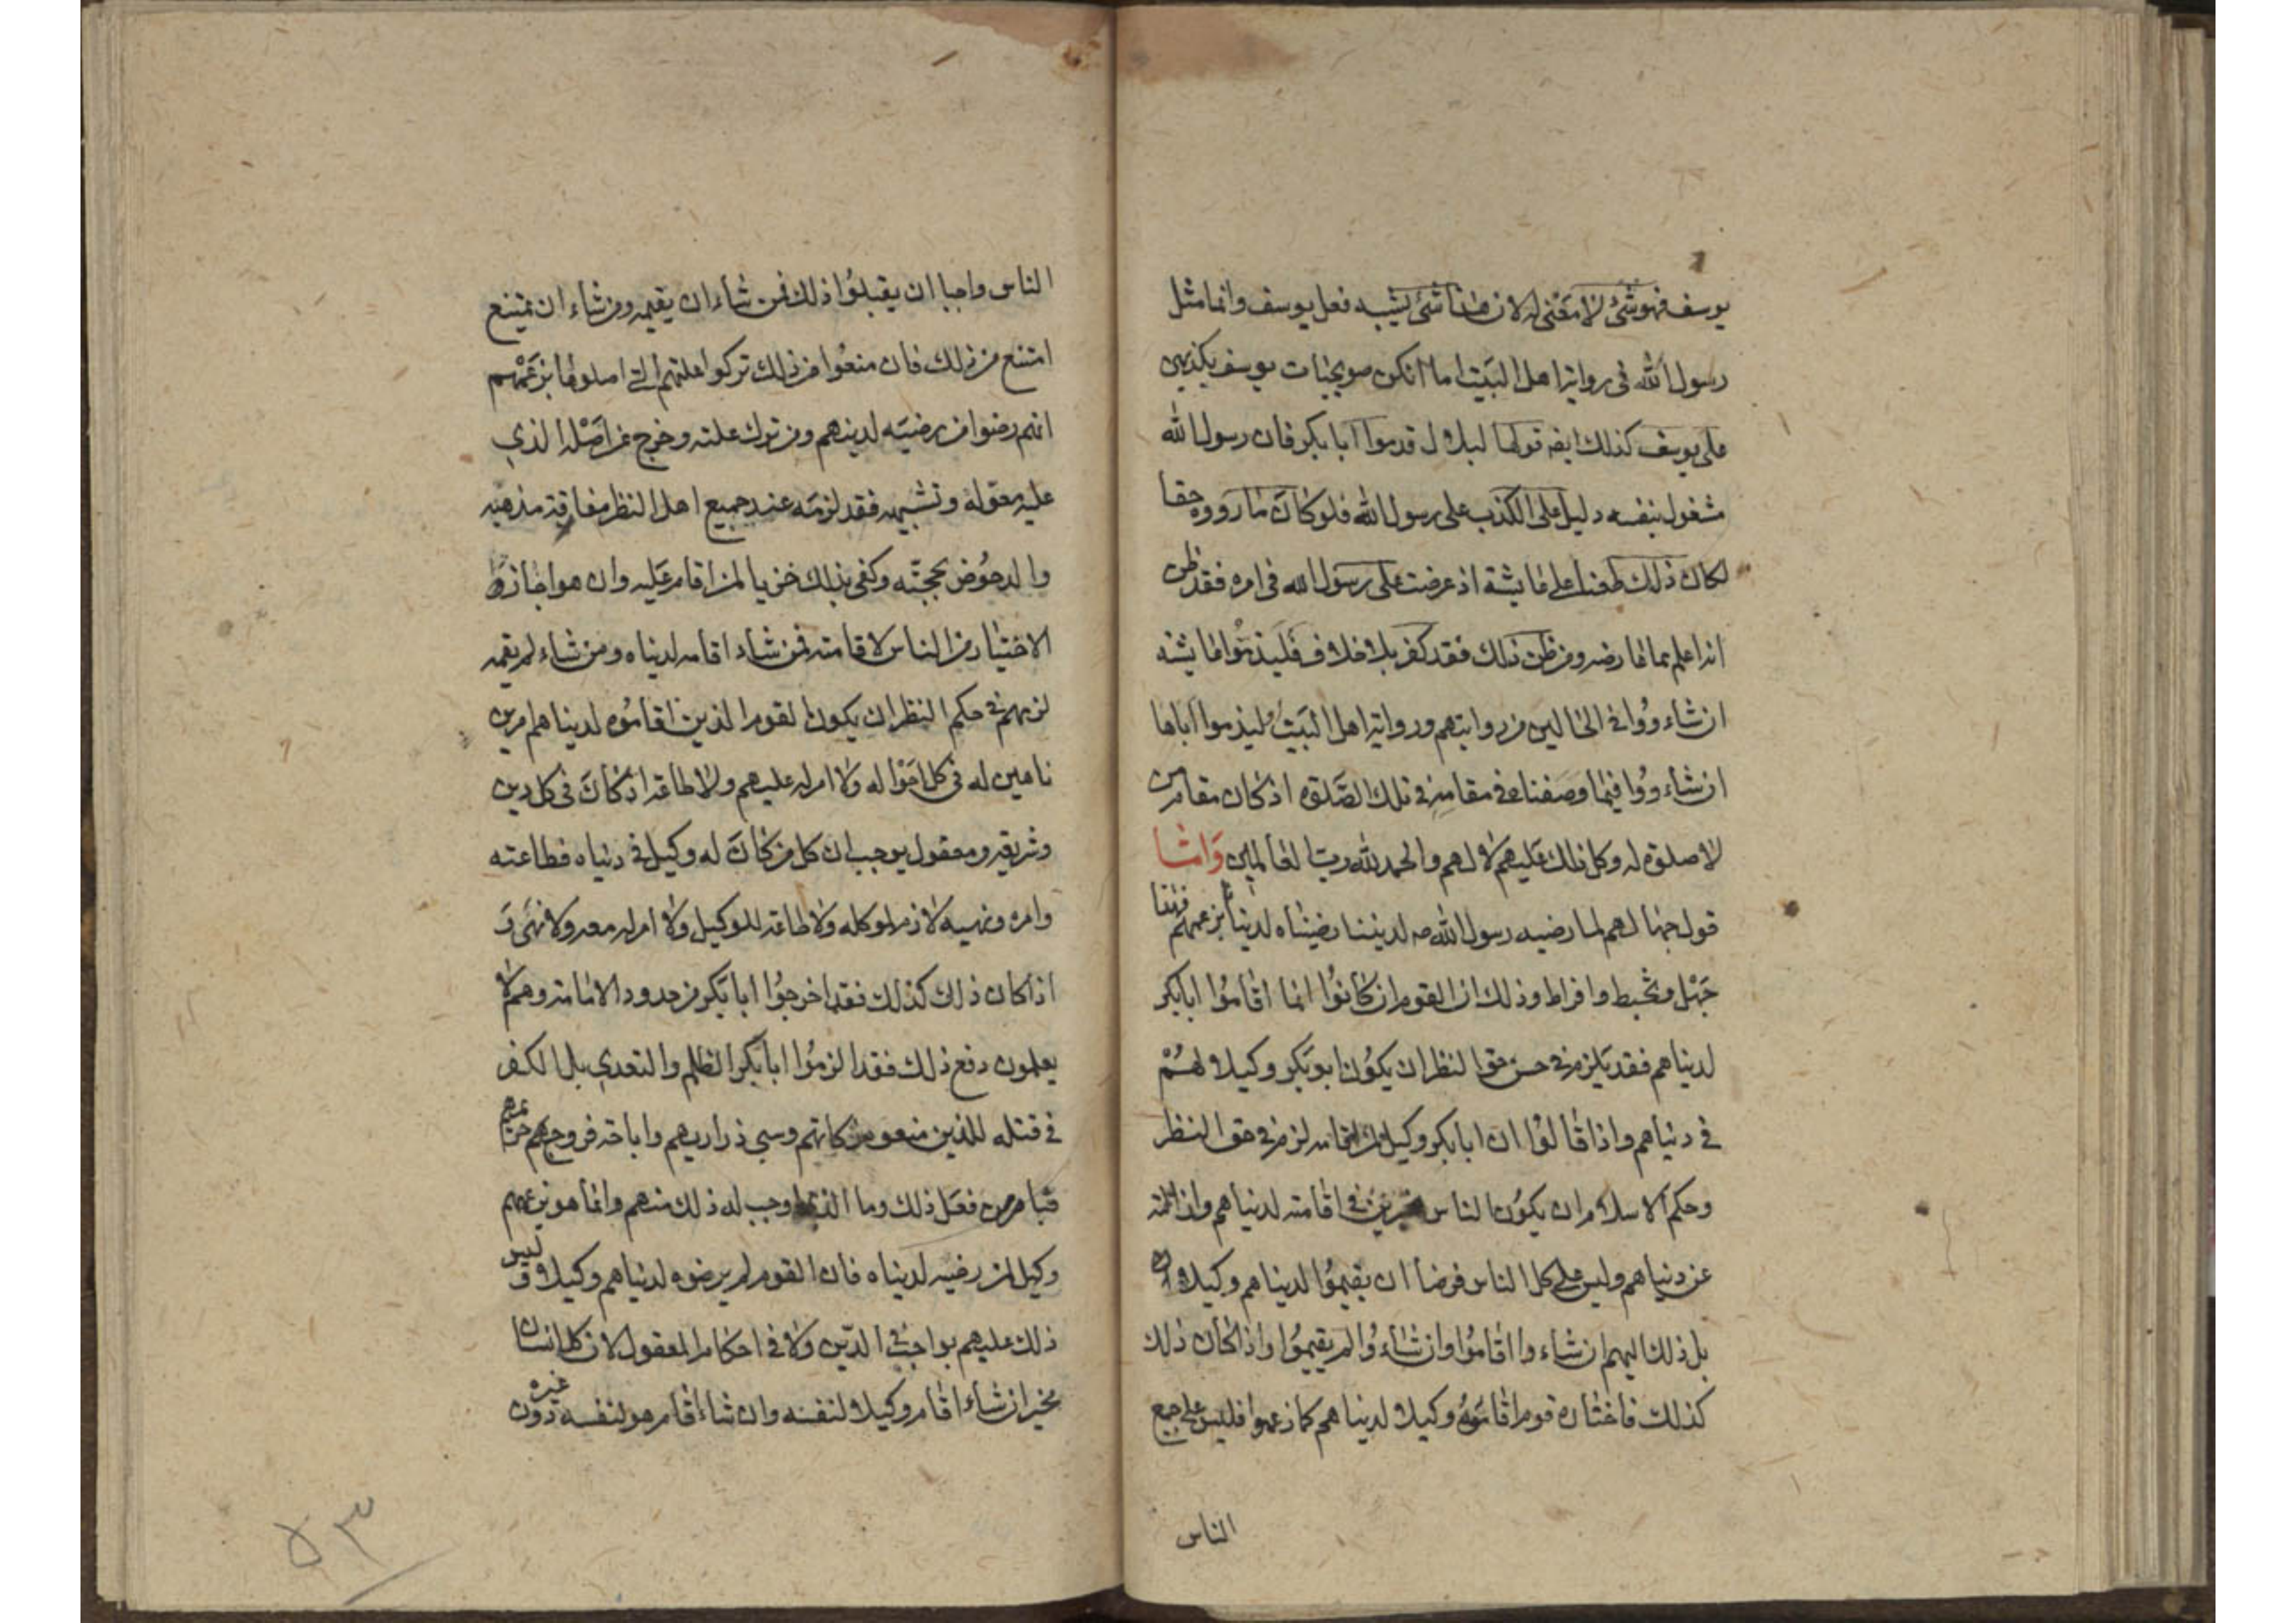 يوسف فهو شئ لا معنى له لان هذا شئ يشبه فعل يوسف وانما مثل
رسول الله فى رواية اهل البيت اما انكن صويحبات يوسف يكذبهن
على يوسف كذلك ايضه قولها لبلال قدموا ابا بكر فان رسول الله
مشغول بنفسه دليل على الكذب على رسول الله فلو كان ما رووه حقا
لكان ذلك طعنا على عايشة اذ عرضت على رسول الله فى امره فقد ظن
انه اعلم بما عارضه ومن ظن ذلك فقد كفر بلا خلاف فليذموا عايشه
ان شاءووا فى الحالين من روايتهم ورواية اهل البيت وليذموا اباها
ان شاءووا فيما وصفناه فى مقامه فى تلك الصلوة اذ كان مقام من
لا صلوة له وكل ذلك عليهم لا لهم والحمد لله رب العالمين واما
قول جهالهم لما رضيه رسول الله صه لديننا رضيناه لدنيا بزعمهم فهذا
جهل وتخبط وافراط وذلك ان القوم ان كانوا انما اقاموا ابا بكر
لدنياهم فقد يلزم فى حسن حق النظر ان يكون ابو بكر وكيلا لهم
فى دنياهم واذا قالوا ان ابا بكر وكيل لمن اقامه لزم فى حق النظر
وحكم الاسلام ان يكون الناس مخيرين فى اقامته لدنياهم
عن دنياهم وليس على كل الناس فرضا ان يقيموا لدنياهم وكيلا
بل ذلك اليهم ان شاءوا اقاموا وان شاءوا لم يقيموا واذا كان ذلك
كذلك فاختاره قوم اقاموه وكيلا لدنياهم كما زعموا فليس على جميع
الناس
الناس واجبا ان يقبلوا ذلك فمن شاء ان يقيمه ومن شاء ان يمتنع
امتنع من ذلك فان منعوا من ذلك تركوا علتهم التى اصلوها بزعمهم
انهم رضوا من رضيه لدينهم ومن ترك علته وخرج عن اصله الذي
عليه معوله وتشبيهه فقد لزمه عند جميع اهل النظر مفارقة مذهبه
والدحوض بحجته وكفى بذلك خزيا لمن اقام عليه وان هو اجاز
الاختيار من الناس لاقامته فمن شاء اقامه لدنياه ومن شاء لم يقمه
لزمهم فى حكم النظر ان يكون القوم الذين اقاموه لدنياهم امرين
ناهين له فى كل احواله ولا امر له عليهم ولا طاعة اذ كان فى كل دين
وشريعه ومعقول يوجب ان كل من كان له وكيل فى دنياه فطاعته
وامره ونهيه لازم لوكله ولا طاعة للوكيل ولا امر له معه ولا نهى و
اذا كان ذلك كذلك فقد اخرجوا ابا بكر من حدود الامامة وهم لا
يعلمون دفع ذلك فقد الزموا ابا بكر الظلم والتعدي بل الكفر
فى قتله للذين منعوه زكاتهم وسبي ذراريهم واباحة فروجهم
فبامر من فعل ذلك وما الذي اوجب له ذلك منهم وانما هو بزعمهم
وكيل لمن رضيه لدنياه فان القوم لم يرضوه لدنياهم وكيلا وليس
ذلك عليهم بواجب فى الدين ولا فى احكام المعقول لان كل انسان
مخير ان شاء اقام وكيلا لنفسه وان شاء اقام هو لنفسه دون غيره
٥٣